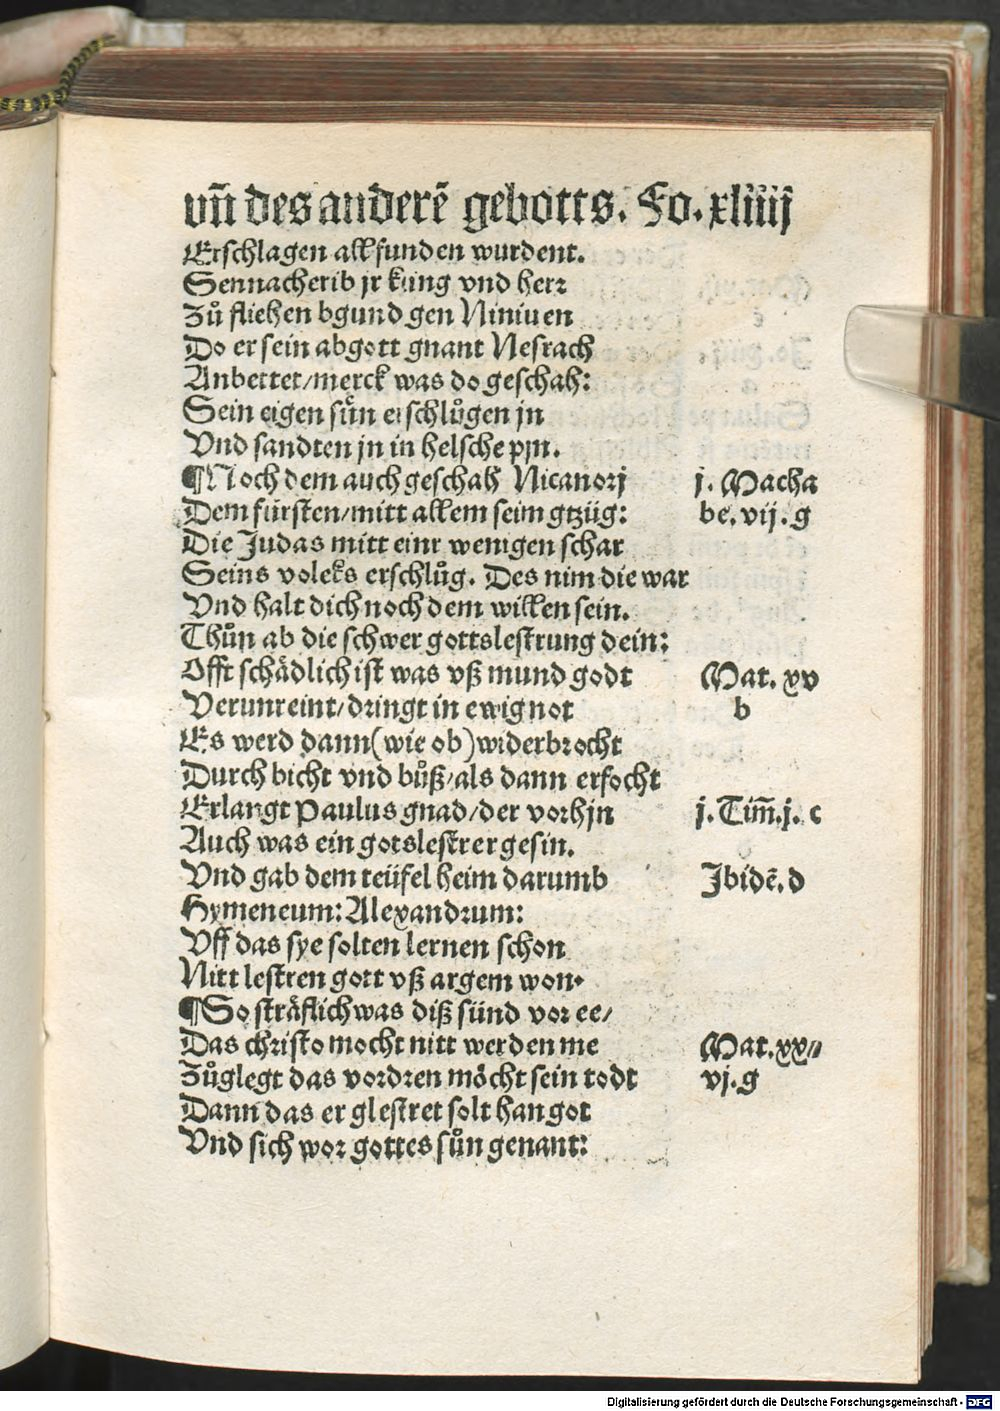 vñ des anderẽ gebotts. Fo. xliiij
Erschlagen all funden wurdent.
Sennacherib jr küng vnd herr
Zů fliehen bgund gen Niniuen
Do er sein abgott gnant Nesrach
Anbettet/merck was do geschah:
Sein eigen sün erschlůgen jn
Vnd sandten jn in helsche pjn.
¶Noch dem auch geschah Nicanorj j. Macha
Dem fürsten/mitt allem seim gtzüg: be. vij. g
Die Judas mitt einr wenigen schar
Seins volcks erschlůg. Des nim die war
Vnd halt dich noch dem willen sein.
Thůn ab die schwer gottslestrung dein:
Offt schädlich ist was vß mund godt Mat. xv
Verunreint/dringt in ewig not b
Es werd dann(wie ob)widerbrocht
Durch bicht vnd bůß/als dann erfocht
Erlangt Paulus gnad/der vorhjn j. Tim̃. j. c
Auch was ein gotslestrer gesin.
Vnd gab dem teüfel heim darumb Jbidẽ. d
Hymeneum: Alexandrum:
Vff das sye solten lernen schon
Nitt lestren gott vß argem won.
¶So sträflich was diß sünd vor ee/
Das christo mocht nitt werden me Mat. xx//
Zůglegt das vordren möcht sein todt vj. g
Dann das er glestret solt han got
Vnd sich wor gottes sůn genant:
Digitalisierung gefördert durch die Deutsche Forschungsgemeinschaft - DFG